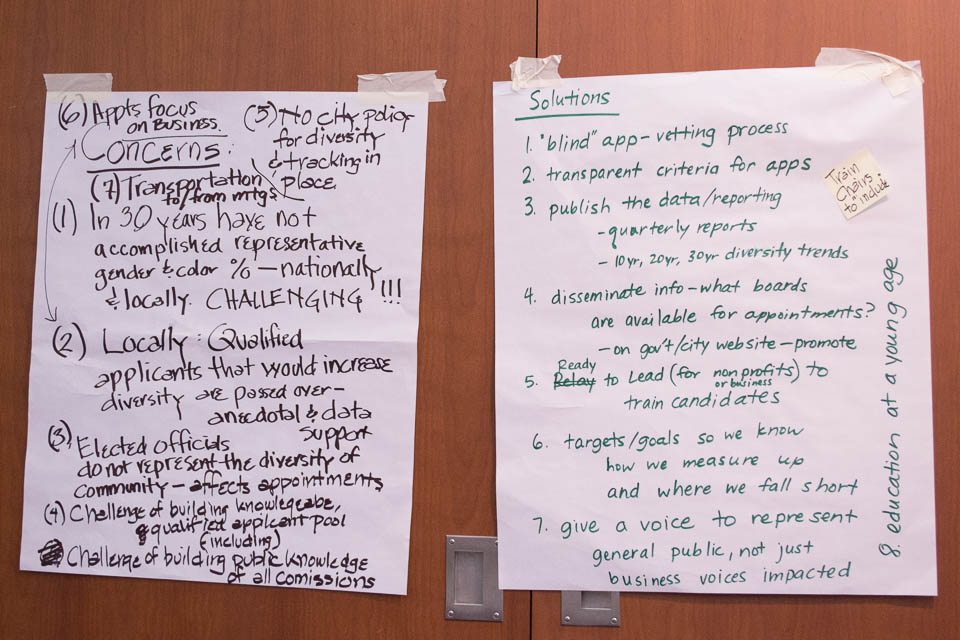 (6) Appts focus
on Business.
(5) No city policy
for diversity
& tracking in
place.
Concerns:
(7) Transportation
to/from mtgs
(1) In 30 years have not
accomplished representative
gender & color % – nationally
& locally. CHALLENGING !!!
(2) Locally: Qualified
applicants that would increase
diversity are passed over –
anecdotal & data
support
(3) Elected officials
do not represent the diversity of
community – affects appointments
(4) Challenge of building knowlegeabe,
& qualified applicant pool
(including)
Challenge of building public knowledge
of all comissions
Solutions
1. "blind" app-vetting process
2. transparent criteria for apps
3. publish the data/reporting
- quarterly reports
- 10yr, 20yr, 30yr diversity trends
4. disseminate info – what boards
are available for appointments?
- on gov't/city website – promote
Ready
5. Relay to Lead (for nonprofits) to
or business
train candidates
6. targets/goals so we know
how we measure up
and where we fall short
7. give a voice to represent
general public, not just
business voices impacted
8. education at a young age
Train
Chairs
to "include"